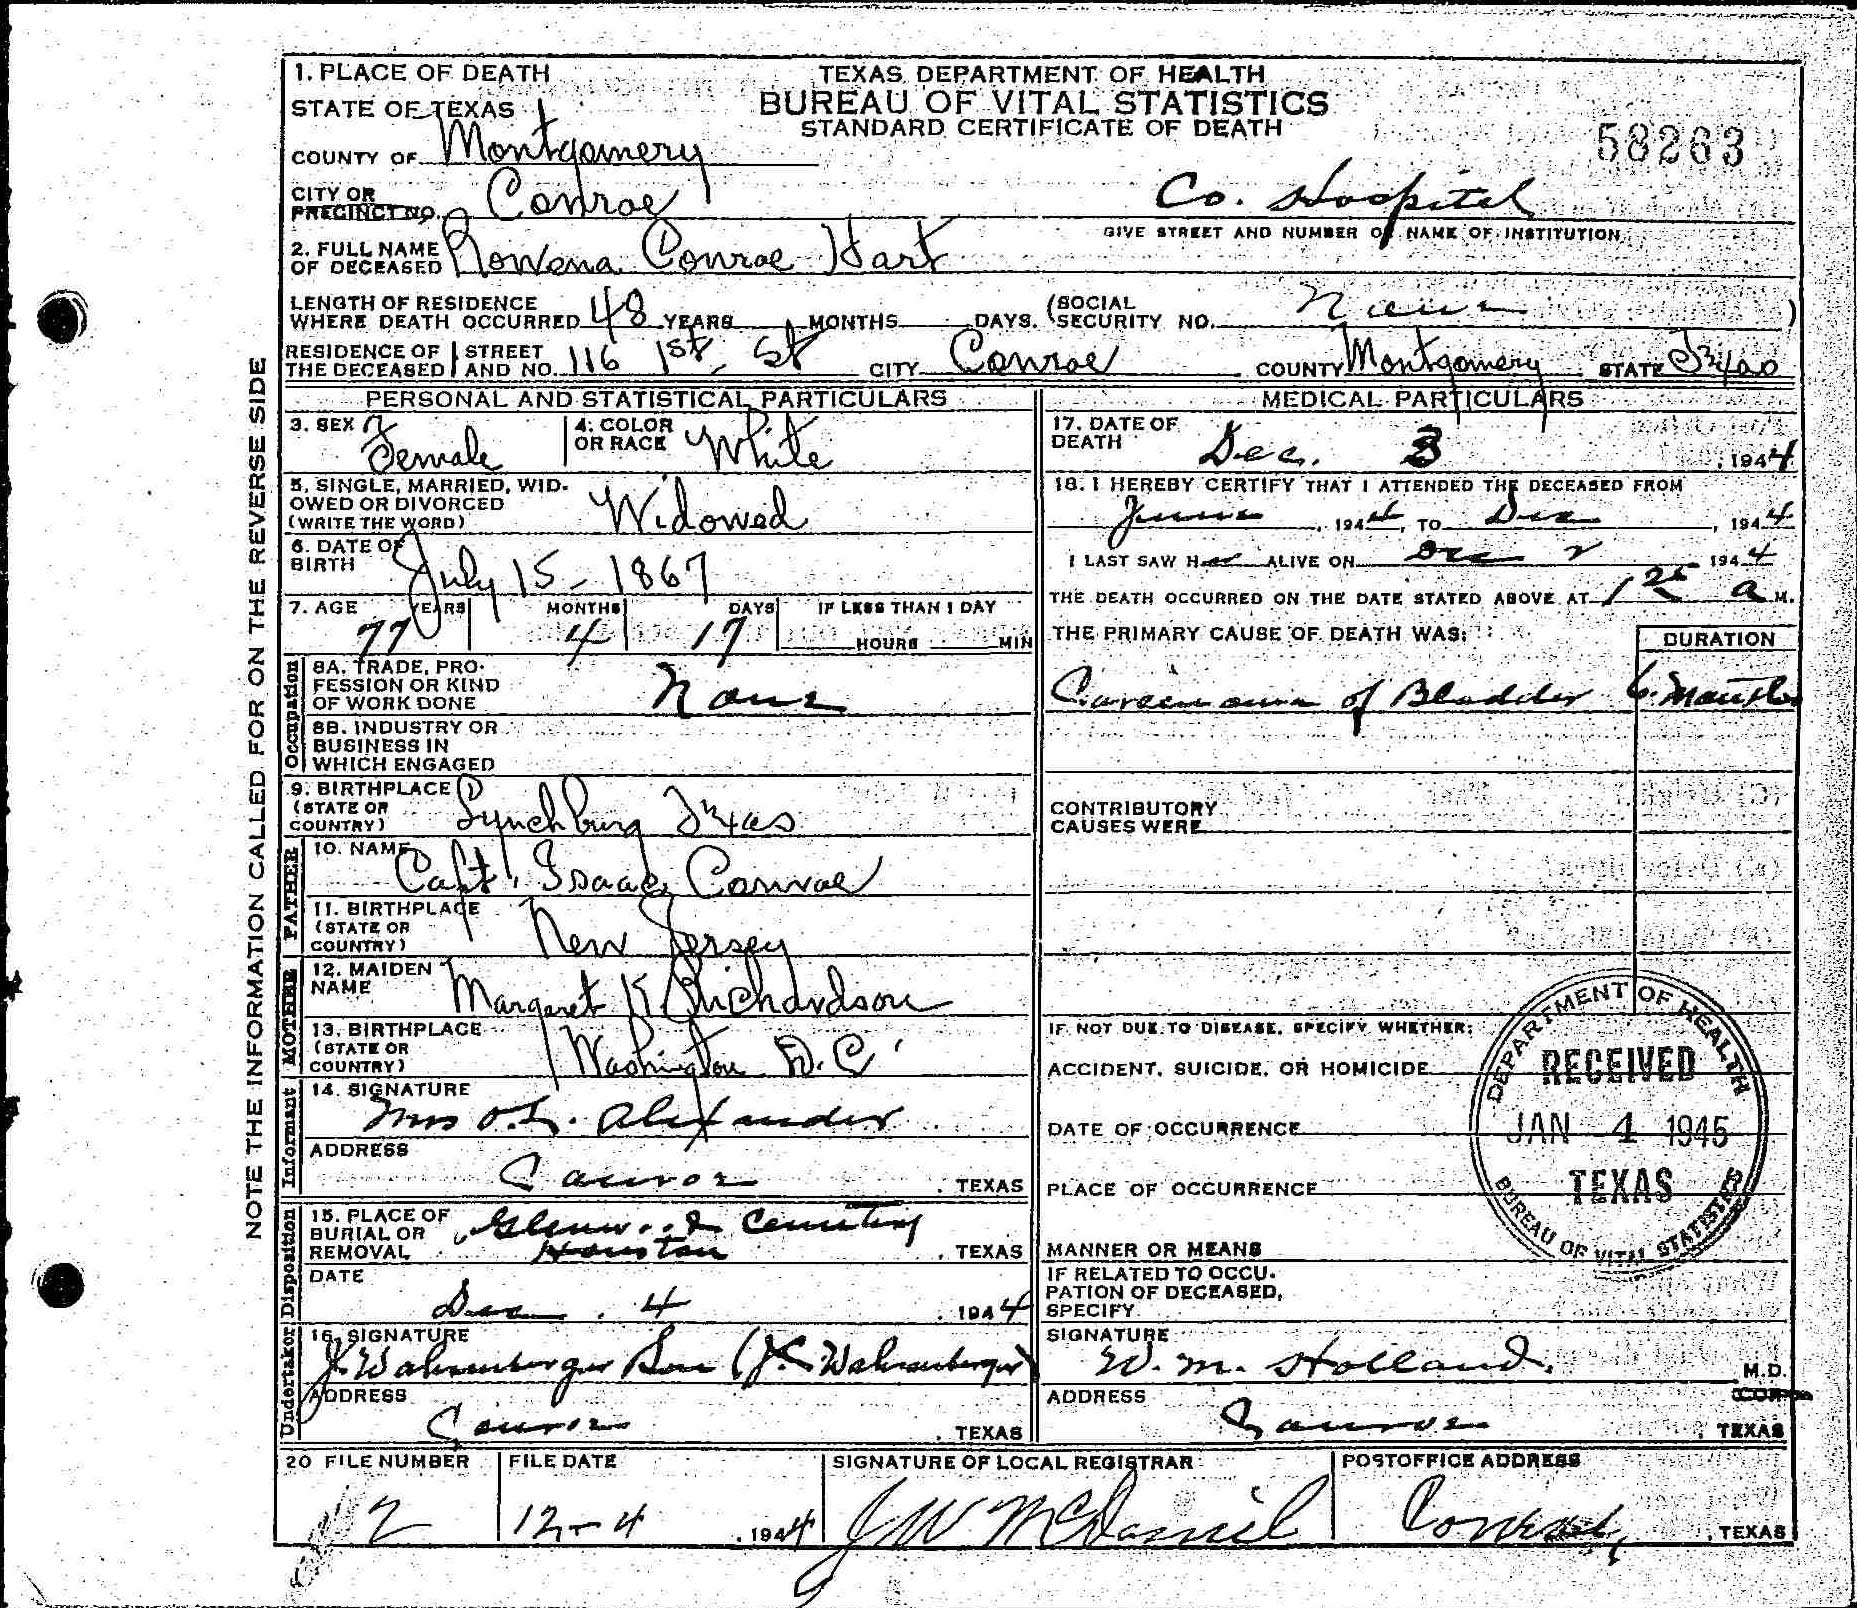 1. PLACE OF DEATH
STATE OF TEXAS
TEXAS DEPARTMENT OF HEALTH
BUREAU OF VITAL STATISTICS
STANDARD CERTIFICATE OF DEATH
58263
COUNTY OF Montgomery
CITY OR PRECINCT NO. Conroe
Co. Hospital
GIVE STREET AND NUMBER OR NAME OF INSTITUTION
2. FULL NAME OF DECEASED Rowena Conroe Hart
LENGTH OF RESIDENCE WHERE DEATH OCCURRED 48 YEARS MONTHS DAYS. (SOCIAL SECURITY NO. None )
RESIDENCE OF THE DECEASED STREET AND NO. 116 1st St CITY Conroe COUNTY Montgomery STATE Texas
NOTE THE INFORMATION CALLED FOR ON THE REVERSE SIDE
PERSONAL AND STATISTICAL PARTICULARS
3. SEX Female
4. COLOR OR RACE White
5. SINGLE, MARRIED, WIDOWED OR DIVORCED (WRITE THE WORD) Widowed
6. DATE OF BIRTH July 15 - 1867
7. AGE YEARS MONTHS DAYS IF LESS THAN 1 DAY
77 4 17 HOURS MIN
Occupation
8A. TRADE, PROFESSION OR KIND OF WORK DONE None
8B. INDUSTRY OR BUSINESS IN WHICH ENGAGED
9. BIRTHPLACE (STATE OR COUNTRY) Lynchburg Texas
FATHER
10. NAME Capt. Isaac Conroe
11. BIRTHPLACE (STATE OR COUNTRY) New Jersey
MOTHER
12. MAIDEN NAME Margaret K Richardson
13. BIRTHPLACE (STATE OR COUNTRY) Washington D.C.
Informant
14. SIGNATURE Mrs O.L. Alexander
ADDRESS Conroe, TEXAS
Disposition
15. PLACE OF BURIAL OR REMOVAL Glenwood Cemetery
Houston, TEXAS
DATE Dec. 4, 1944
Undertaker
16. SIGNATURE J. Wahrenberger Son (J.C. Wahrenberger)
ADDRESS Conroe, TEXAS
MEDICAL PARTICULARS
17. DATE OF DEATH Dec. 3, 1944
18. I HEREBY CERTIFY THAT I ATTENDED THE DECEASED FROM
June, 1944, TO Dec, 1944
I LAST SAW Her ALIVE ON Dec 2 1944
THE DEATH OCCURRED ON THE DATE STATED ABOVE AT 1 25 a M.
THE PRIMARY CAUSE OF DEATH WAS: DURATION
Carcinoma of Bladder 6. Months
CONTRIBUTORY CAUSES WERE
IF NOT DUE TO DISEASE, SPECIFY WHETHER:
ACCIDENT, SUICIDE, OR HOMICIDE
DATE OF OCCURRENCE
PLACE OF OCCURRENCE
MANNER OR MEANS
DEPARTMENT OF HEALTH
RECEIVED
JAN 4 1945
TEXAS
BUREAU OF VITAL STATISTICS
IF RELATED TO OCCUPATION OF DECEASED, SPECIFY
SIGNATURE W. M. Holland. M.D.
ADDRESS Conroe, TEXAS
20 FILE NUMBER FILE DATE SIGNATURE OF LOCAL REGISTRAR POSTOFFICE ADDRESS
2 12-4, 1944 JW McDaniel Conroe, TEXAS